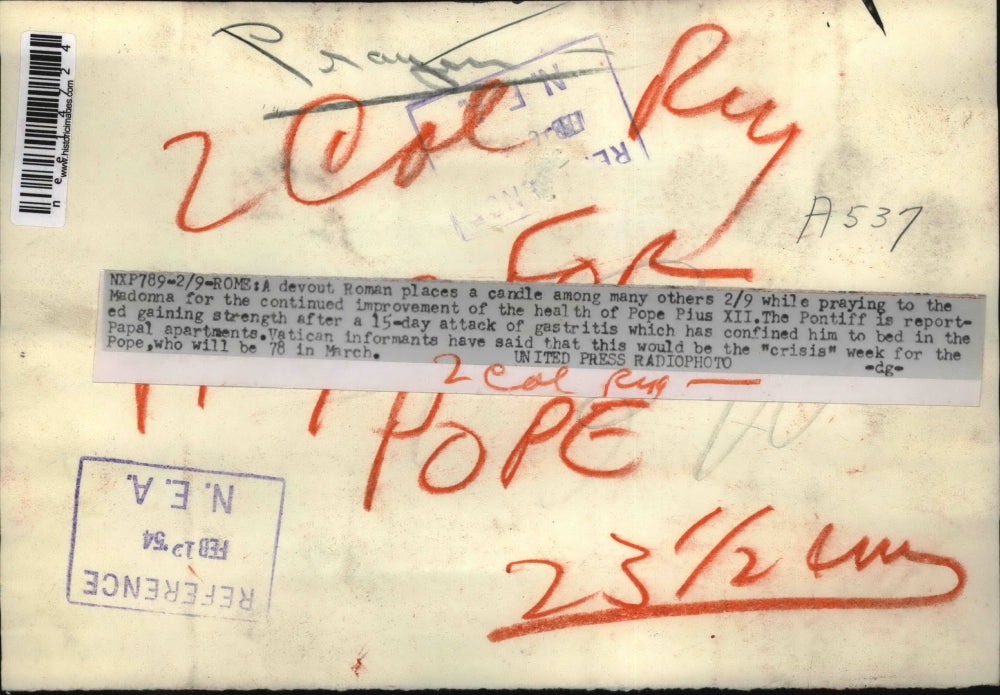 Prayer
2 Col Rug
N.E.A.
RE
A537
FOR
NXP789-2/9-ROME:A devout Roman places a candle among many others 2/9 while praying to the
Madonna for the continued improvement of the health of Pope Pius XII.The Pontiff is report-
ed gaining strength after a 15-day attack of gastritis which has confined him to bed in the
Papal apartments.Vatican informants have said that this would be the "crisis" week for the
Pope,who will be 78 in March. UNITED PRESS RADIOPHOTO -dg-
2 Col Rug —
POPE
REFERENCE
FEB 12 '54
N. E. A.
23 1/2
www.historicimages.com